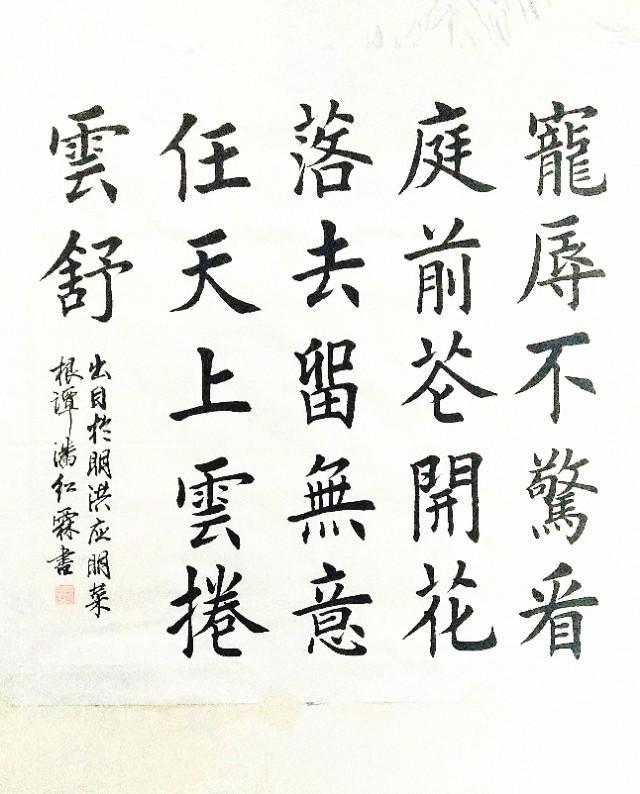 寵辱不驚看
庭前苍開花
落去留無意
任天上雲捲
雲舒
出自於明洪应明菜
根谭潘红霖书